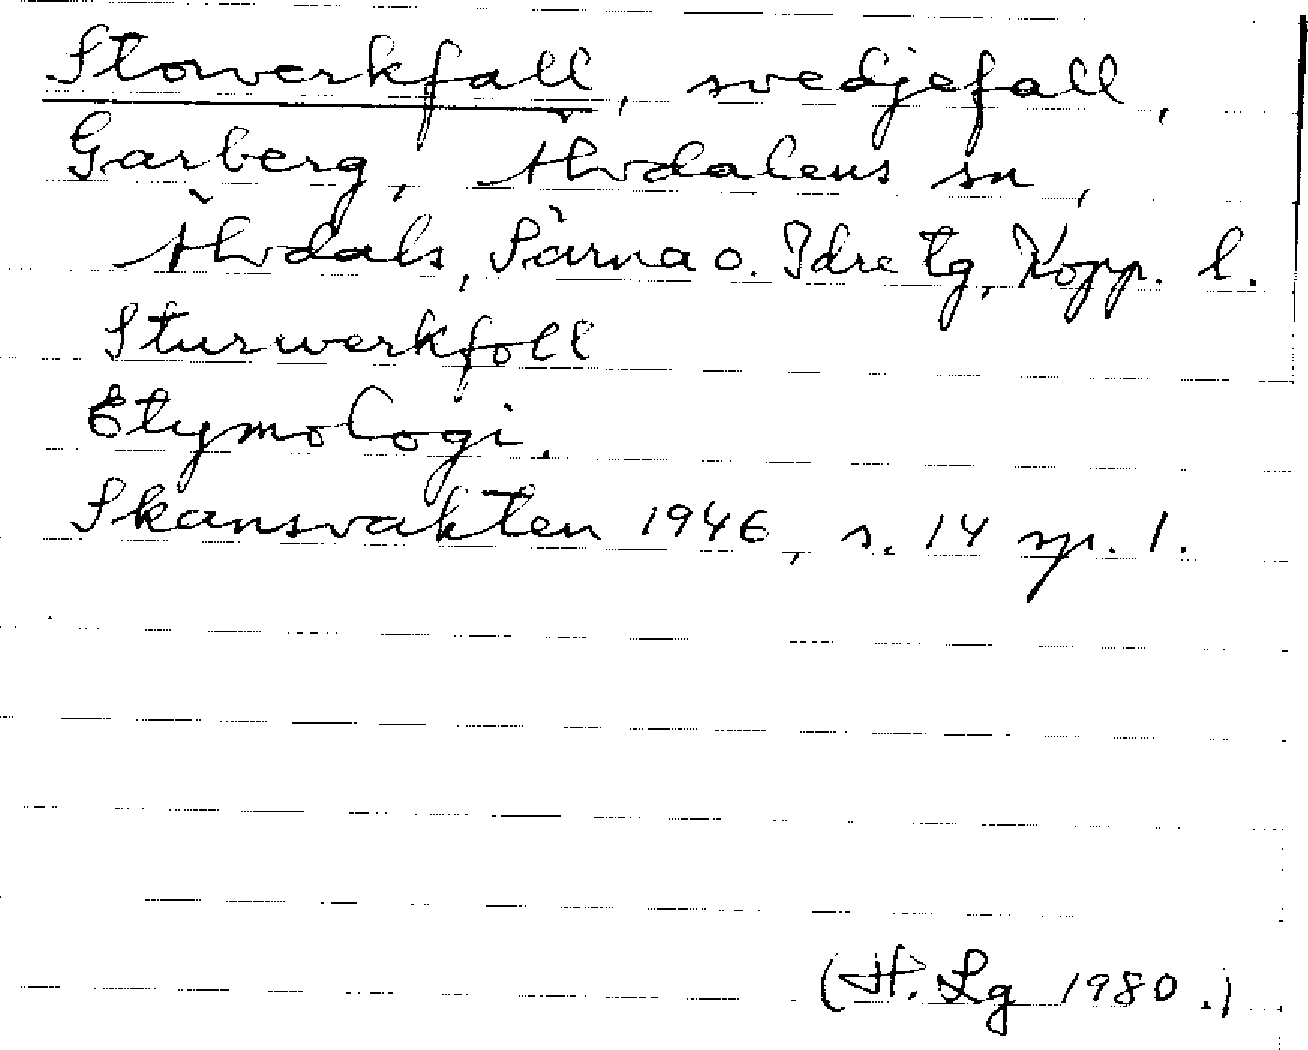 Storverkfall, svedjefall,
Garberg, Älvdalens sn,
Älvdals, Särna o. Idre tg, Kopp. l.
Sturwerkfoll
Etymologi.
Skansvakten 1946, s. 14 sp. 1.
(H. Lg 1980.)